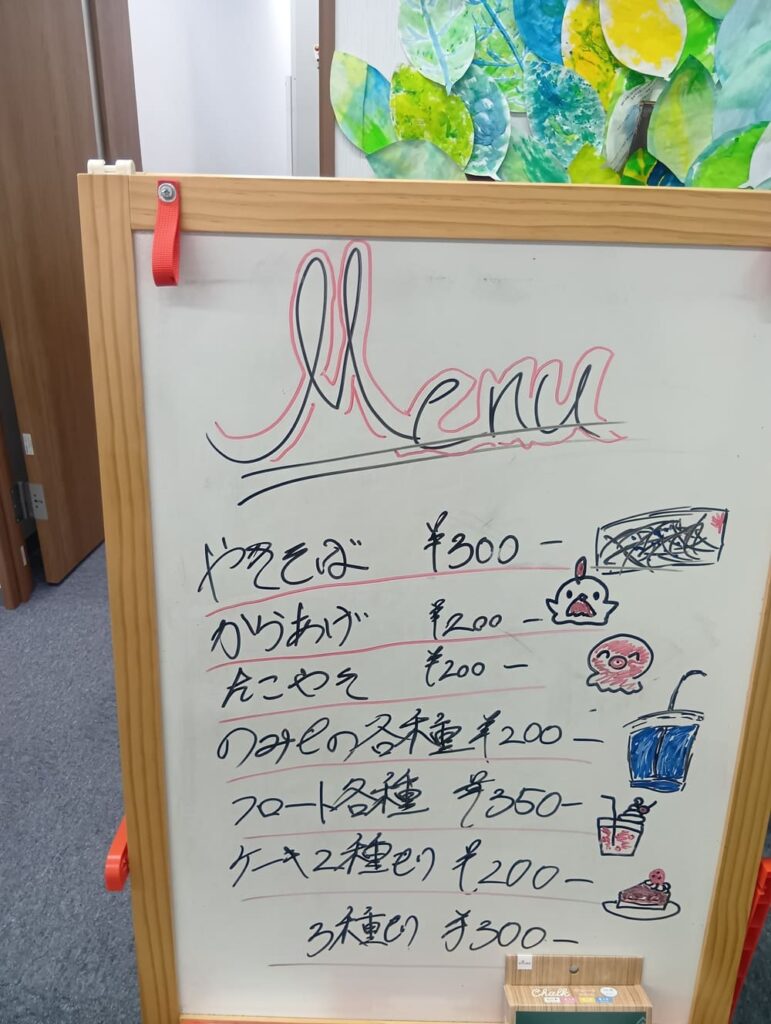 Menu
やきそば ¥300-
からあげ ¥200-
たこやき ¥200-
のみもの各種 ¥200-
フロート各種 ¥350-
ケーキ2種もり ¥200-
3種もり ¥300-
Chalk